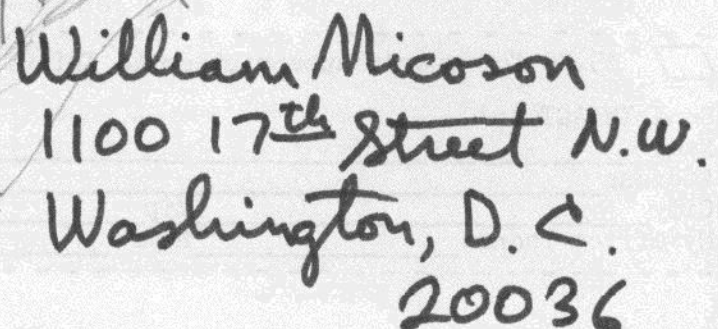 William Micoson
1100 17th Street N.W.
Washington, D.C.
20036